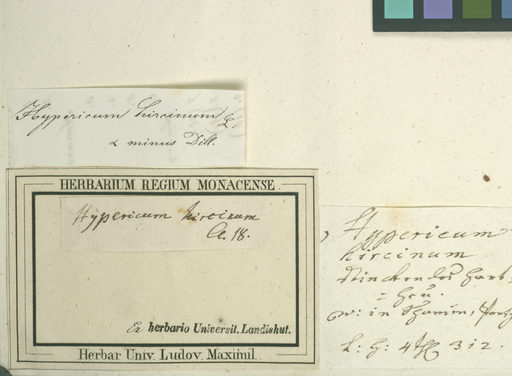 Hypericum hircinum L
α minus Dill.
HERBARIUM REGIUM MONACENSE.
Hypericum hircinum
Cl. 18.
Ex herbario Universit. Landishut.
Herbar Univ. Ludov. Maximil.
Hypericum
hircinum
w: in
L: H: 312.